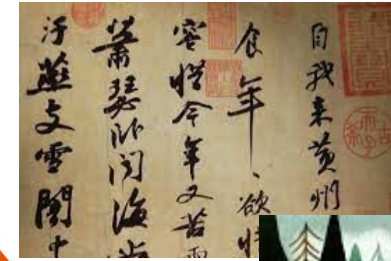 自我來黃州
食年、欲惜
容惜今年又苦雨
蕭瑟臥聞海棠
汙燕支雪闇中